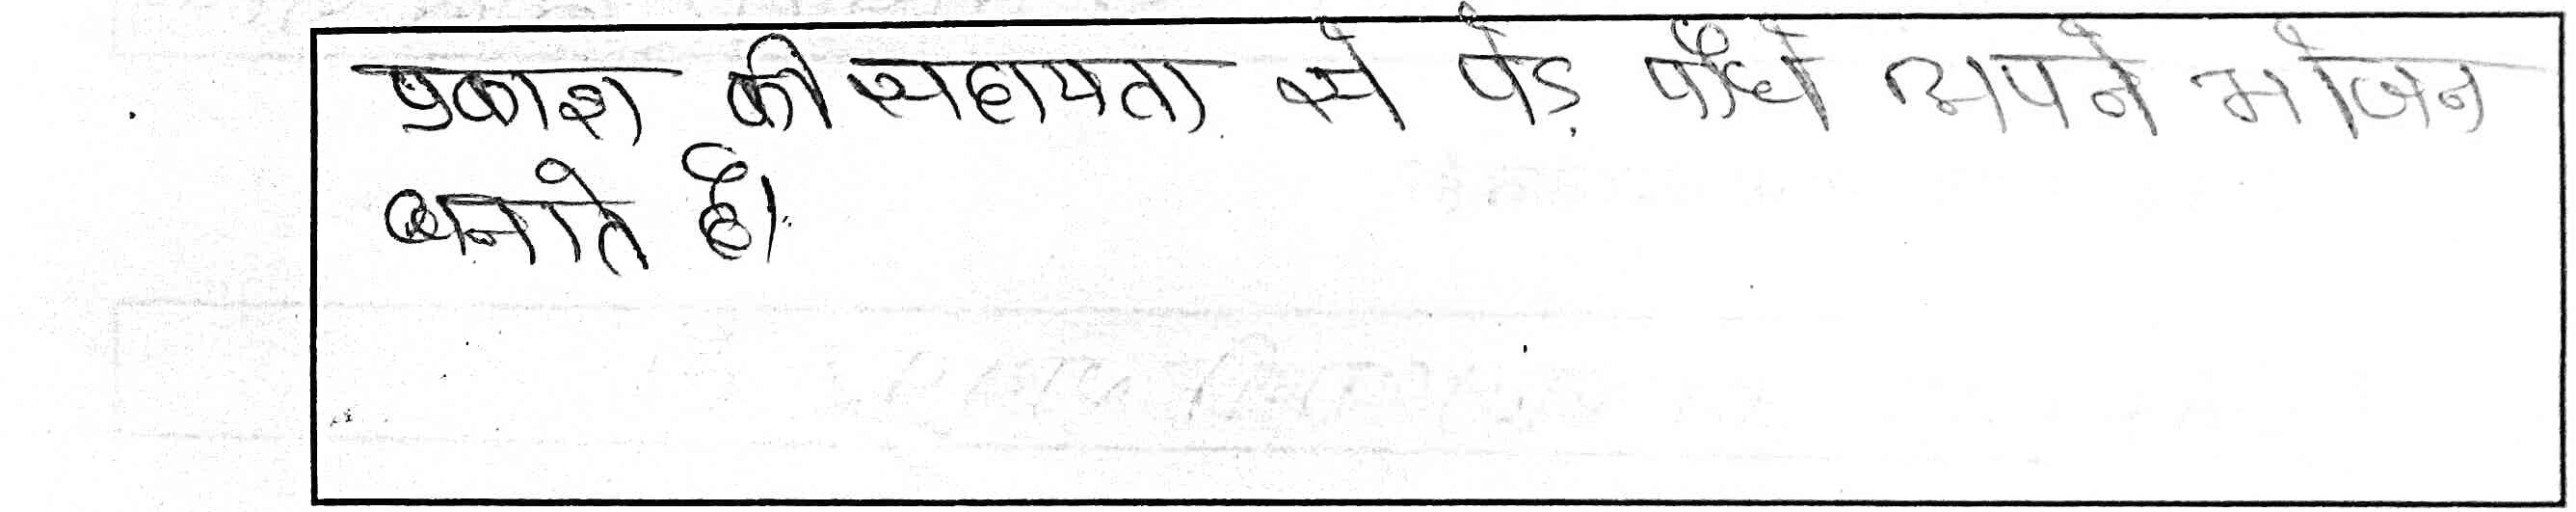 प्रकाश की सहायता से पेड़ पौधे अपने भोजन
बनाते है।